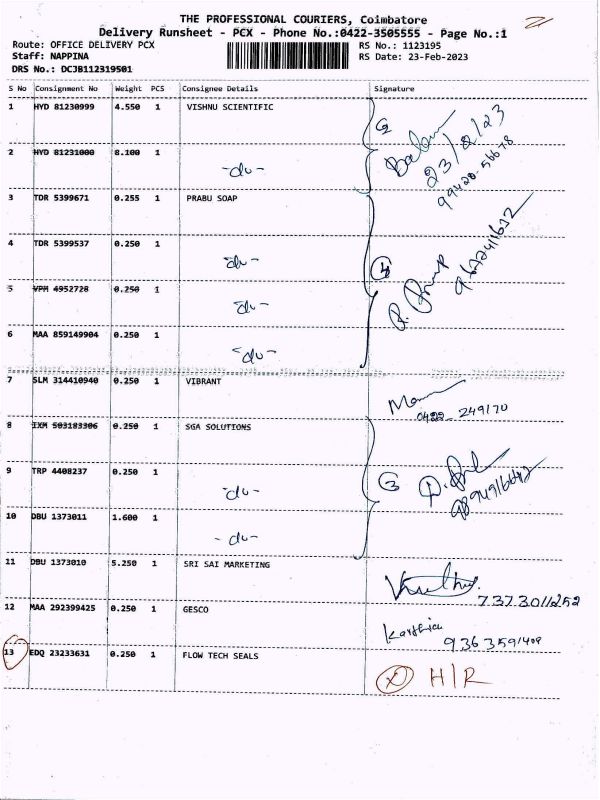 THE PROFESSIONAL COURIERS, Coimbatore
Delivery Runsheet - PCX - Phone No.:0422-3505555 - Page No.:1
Route: OFFICE DELIVERY PCX RS No.: 1123195
Staff: NAPPINA RS Date: 23-Feb-2023
DRS No.: DCJB112319501
S No Consignment No Weight PCS Consignee Details Signature
1 HYD 81230999 4.550 1 VISHNU SCIENTIFIC
2 23/2/23
2 HYD 81231000 8.100 1 -do- 99420-56678
3 TDR 5399671 0.255 1 PRABU SOAP
4 TDR 5399537 0.250 1 -do- 4
5 VPM 4952728 0.250 1 -do-
6 MAA 859149904 0.250 1 -do-
7 SLM 314410940 0.250 1 VIBRANT
0422-249170
8 IXM 503183306 0.250 1 SGA SOLUTIONS
9 TRP 4408237 0.250 1 -do- 3
10 DBU 1373011 1.600 1 -do-
11 DBU 1373010 5.250 1 SRI SAI MARKETING
7373011252
12 MAA 292399425 0.250 1 GESCO Karthica
9363591409
13 EDQ 23233631 0.250 1 FLOW TECH SEALS X H/R